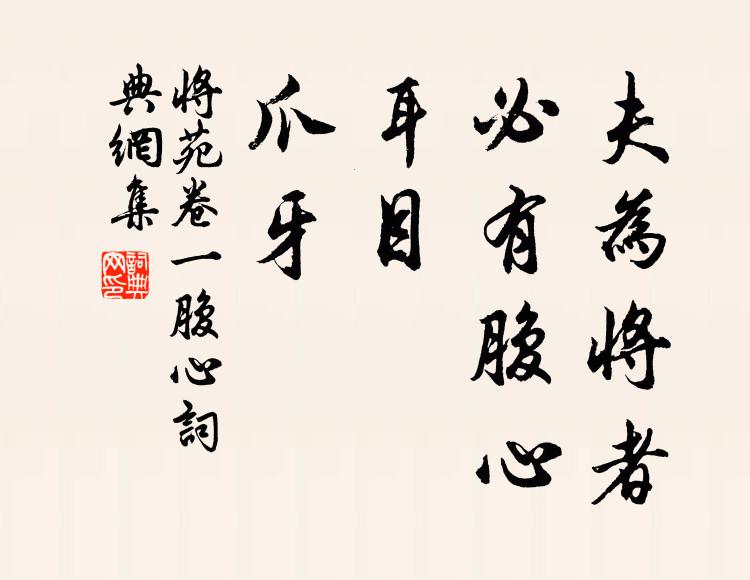 夫為將者
必有腹心
耳目
爪牙
將苑卷一腹心詞
典網集
詞典
网印